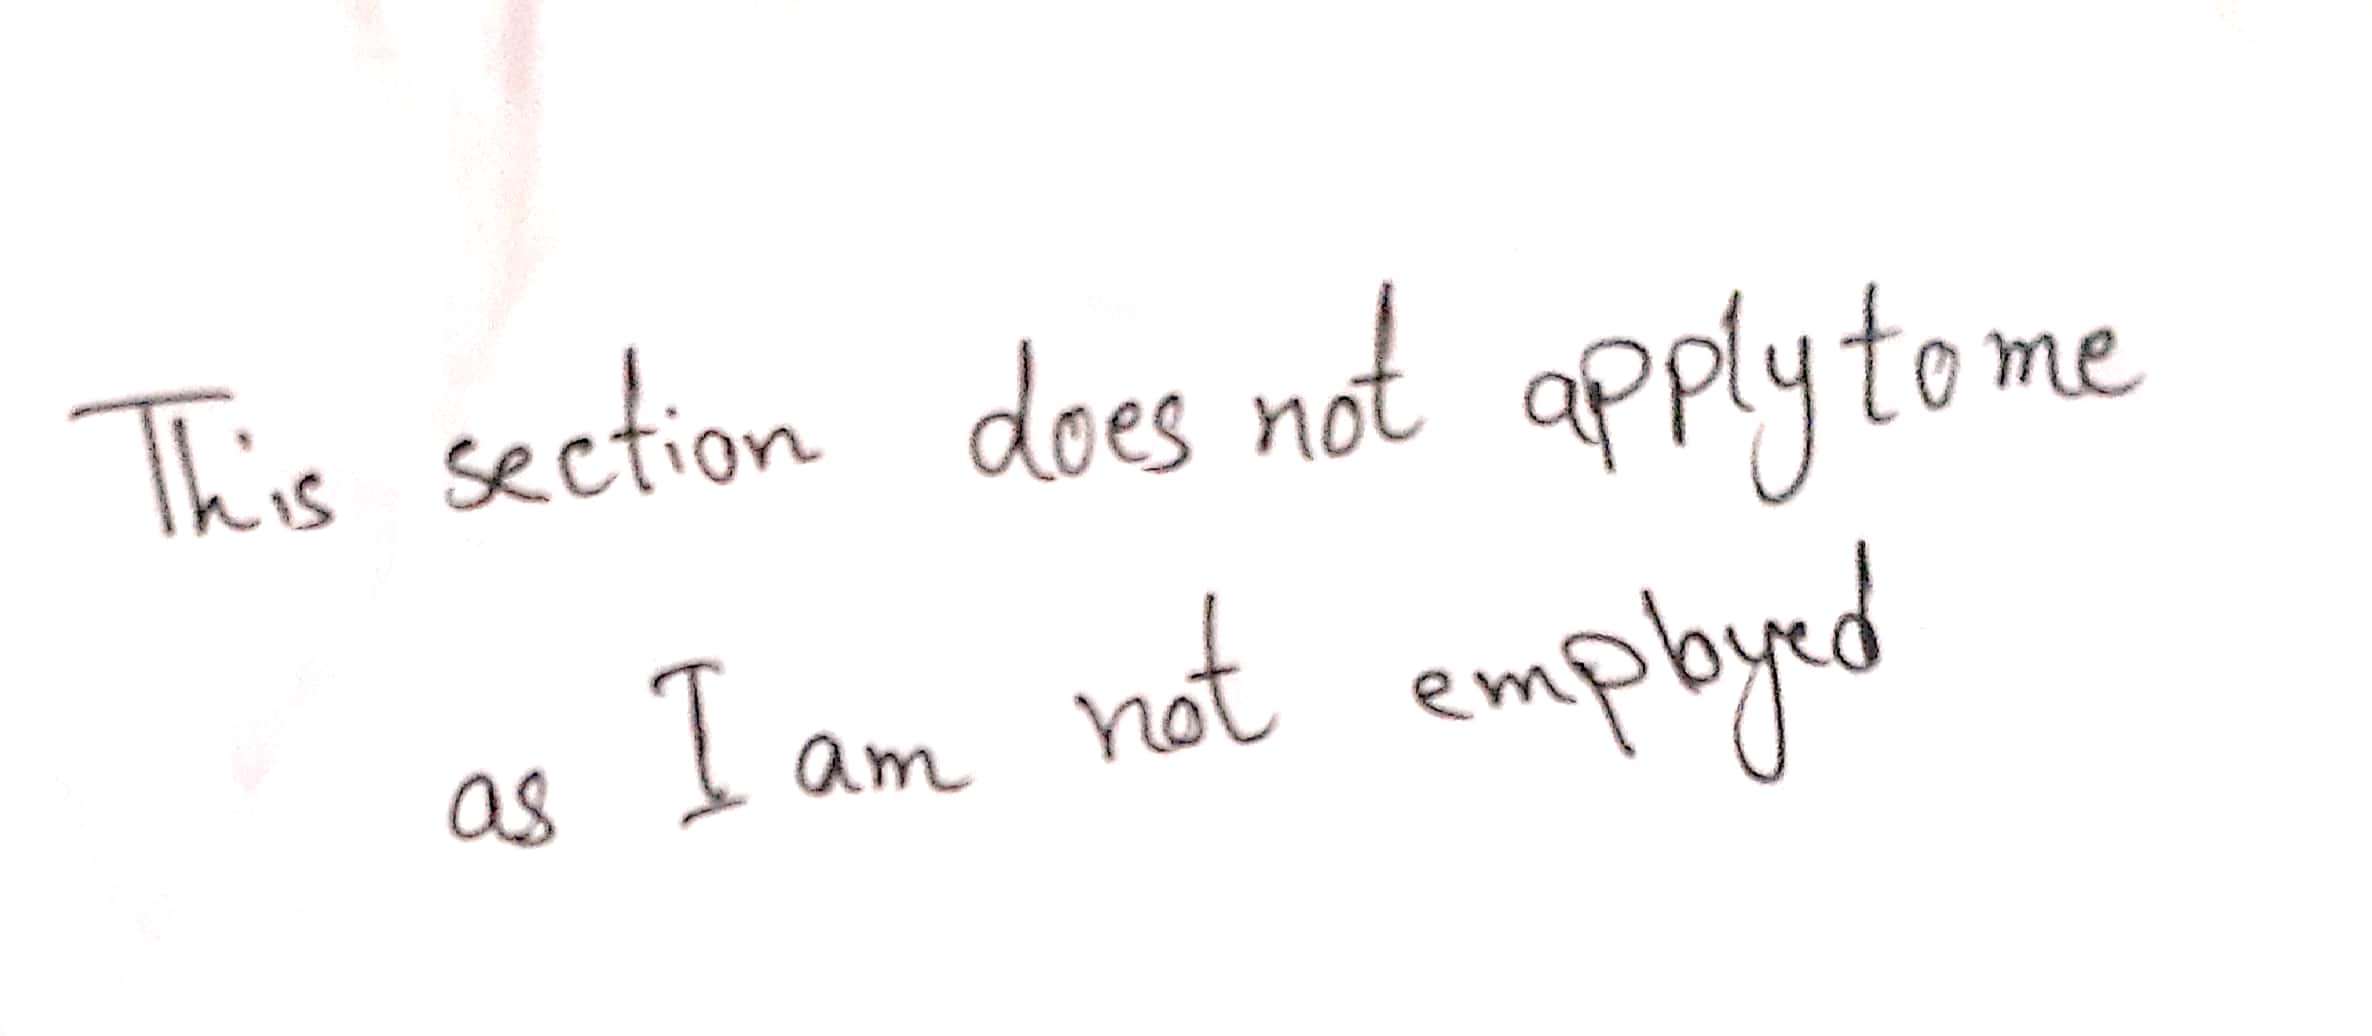 This section does not apply to me
as I am not employed